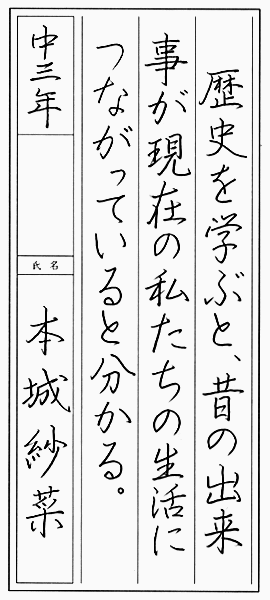 歴史を学ぶと、昔の出来
事が現在の私たちの生活に
つながっていると分かる。
中三年
氏名
本城紗菜